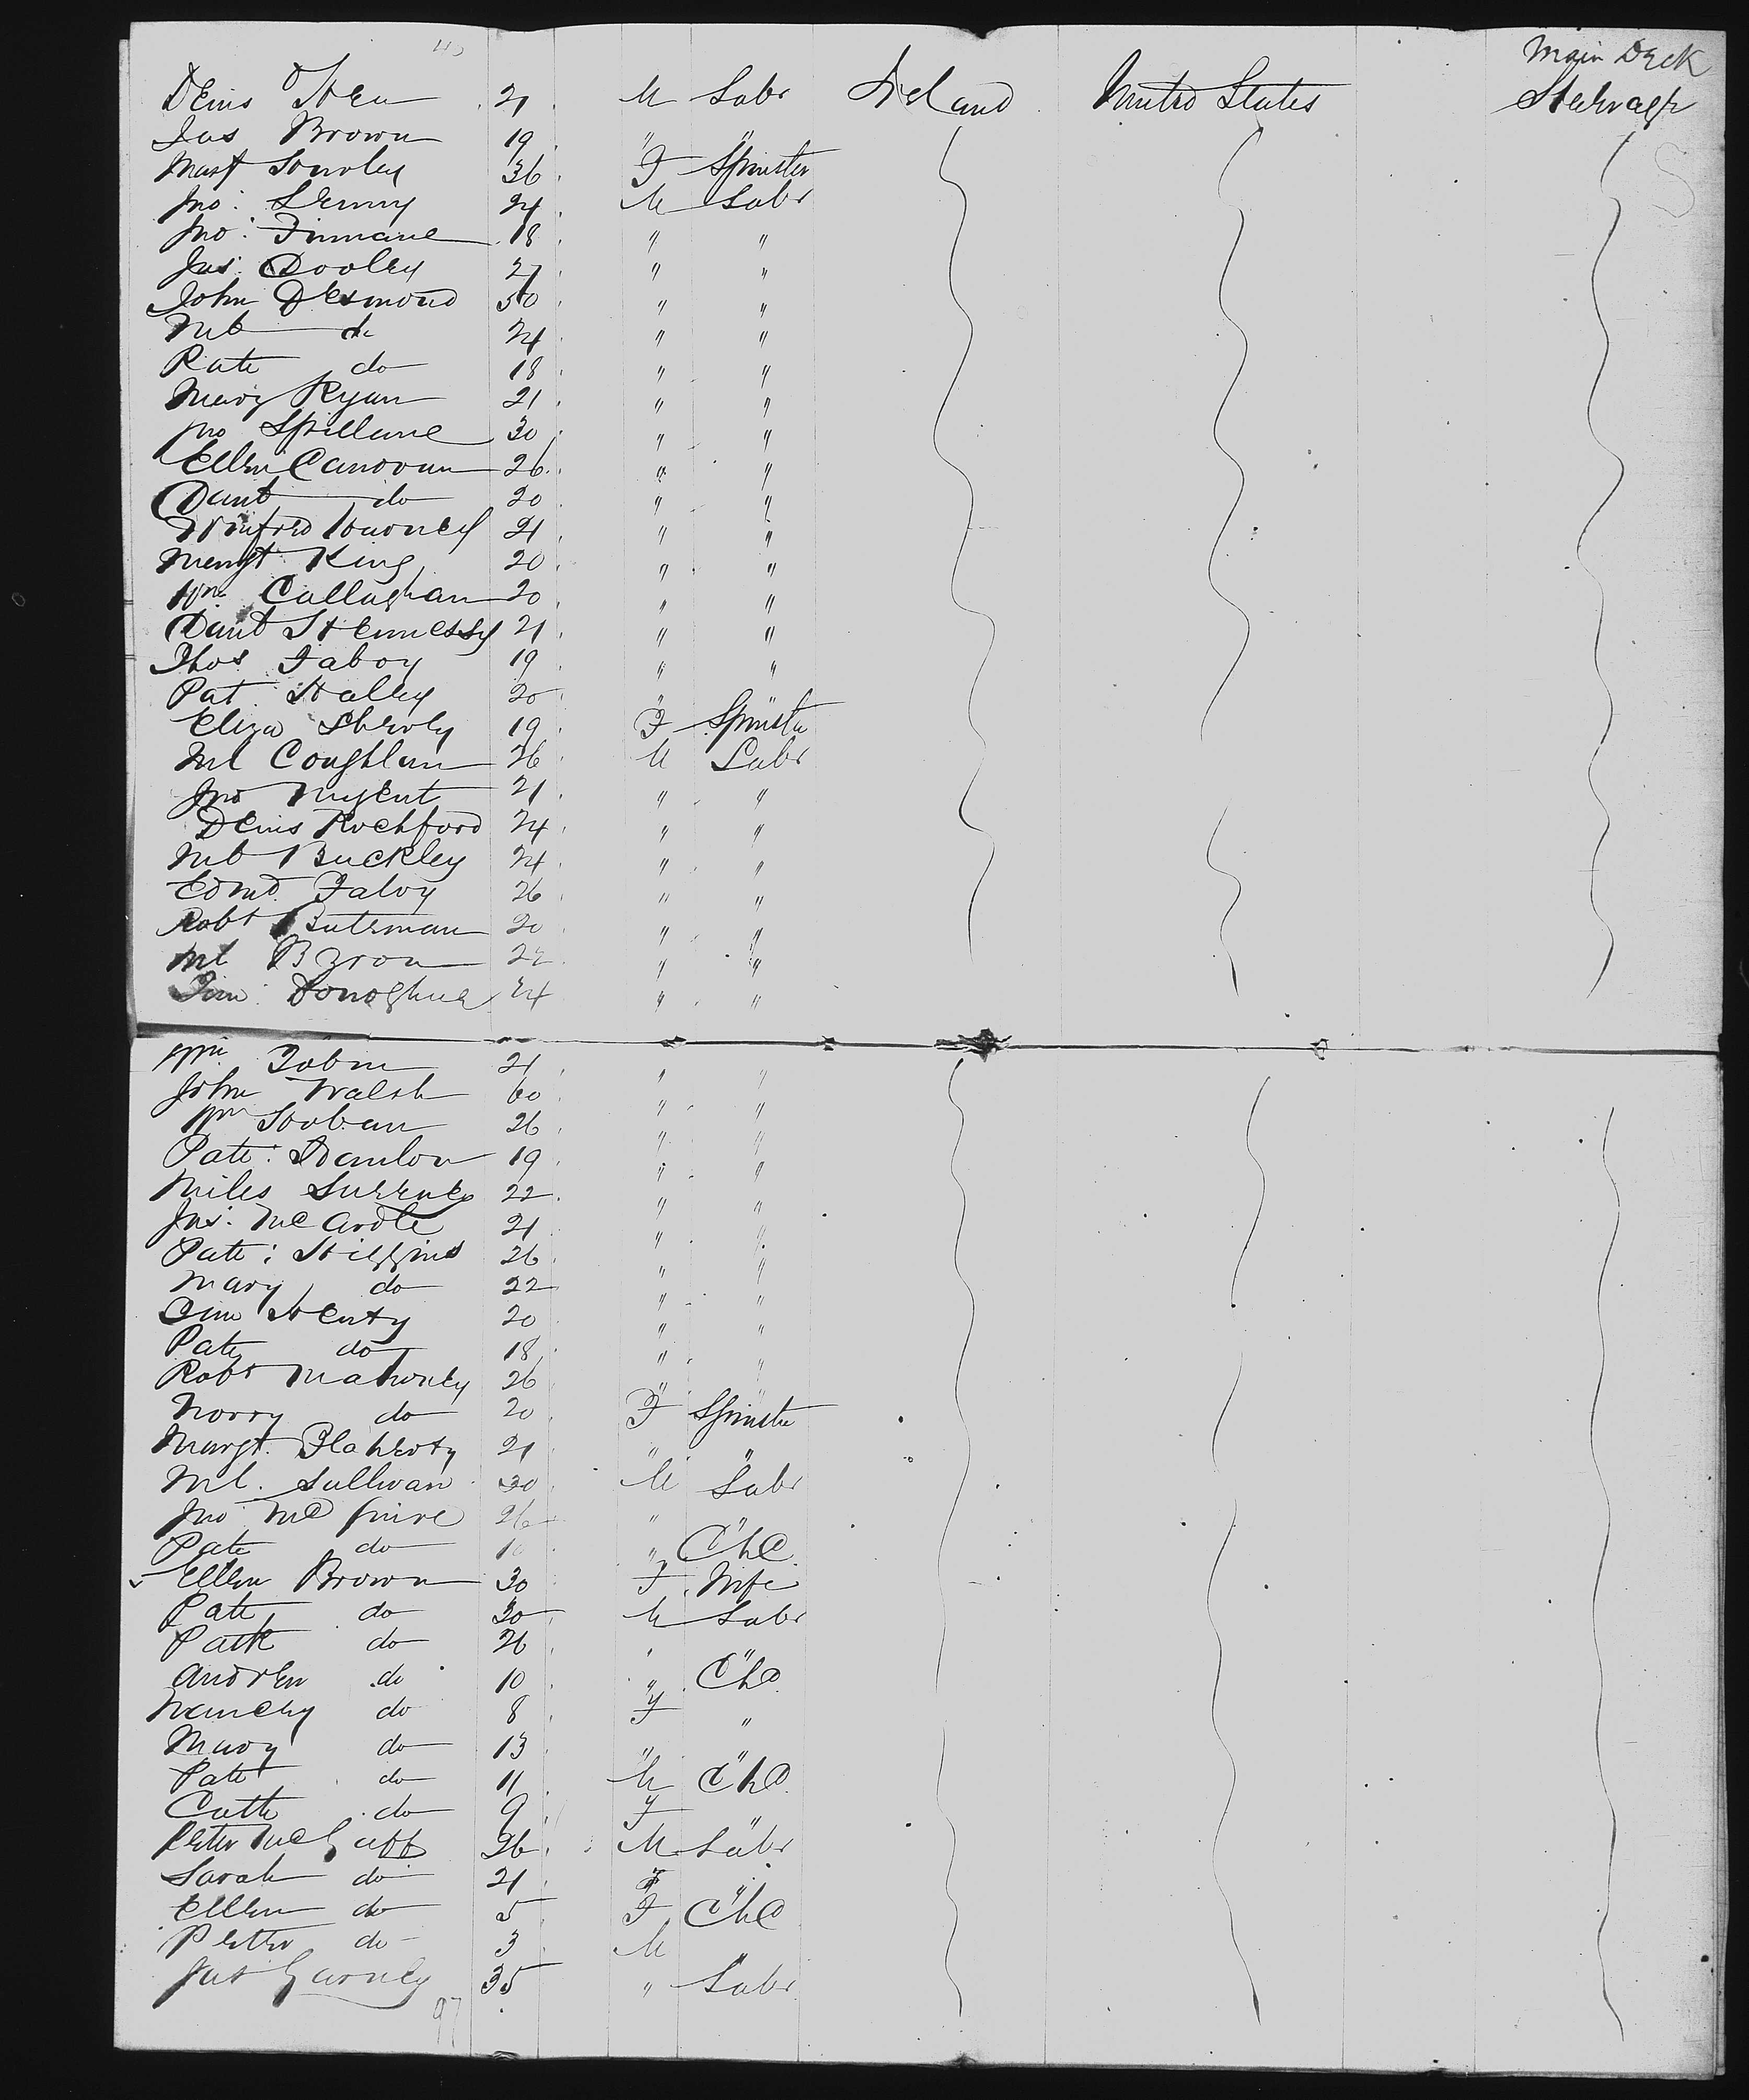 Main Deck
Denis Shea 21 M Labr Ireland United States Steerage
Jas Brown 19 "
Margt Sourley 36 F Spinster
Jno: Denny 24 M Labr
Jno: Finnane 18 " "
Jas: Dooley 27 " "
John Desmond 50 " "
Ml do 24 " "
Kate do 18 " "
Mary Ryan 21 " "
Jno Spillane 30 " "
Ellen Canovan 26 " "
Danl do 20 " "
Winifred 21 " "
Margt King 20 " "
Wm Callaghan 20 " "
Danl Hennessy 21 " "
Thos Faboy 19 " "
Pat Halley 20 " "
Eliza 19 F Spinster
Ml Coughlan 26 M Labr
Jno Nugent 21 " "
Denis Rochford 24 " "
Ml Buckley 24 " "
Edmd Falvy 26 " "
Robt Bateman 20 " "
Ml Byron 22 " "
Tim Donoghue 24 " "
Wm Tobin 21 " "
John Walsh 60 " "
Wm Hoban 26 " "
Patk: Hanlon 19 " "
Miles Sweeney 22 " "
Jas: McArdle 21 " "
Patk: Higgins 26 " "
Mary do 22 " "
Tim Henty 20 " "
Patk do 18 " "
Robt Mahoney 26 " "
Norry do 20 F Spinster
Margt. Flaherty 21 " "
Ml. Sullivan 30 M Labr
Jno McGuire 26 " "
Patk do 10 " Chd
Ellen Brown 30 F Wife
Patk do 30 M Labr
Patk do 26 " "
Andrew do 10 " Chd
Nancy do 8 F "
Mary do 13 " "
Patk do 11 M Chd
Cath do 9 F "
Peter McGuff 26 M Labr
Sarah do 21 F "
Ellen do 5 F Chd
Peter do 3 M "
Jas Garvey 35 " Labr
97